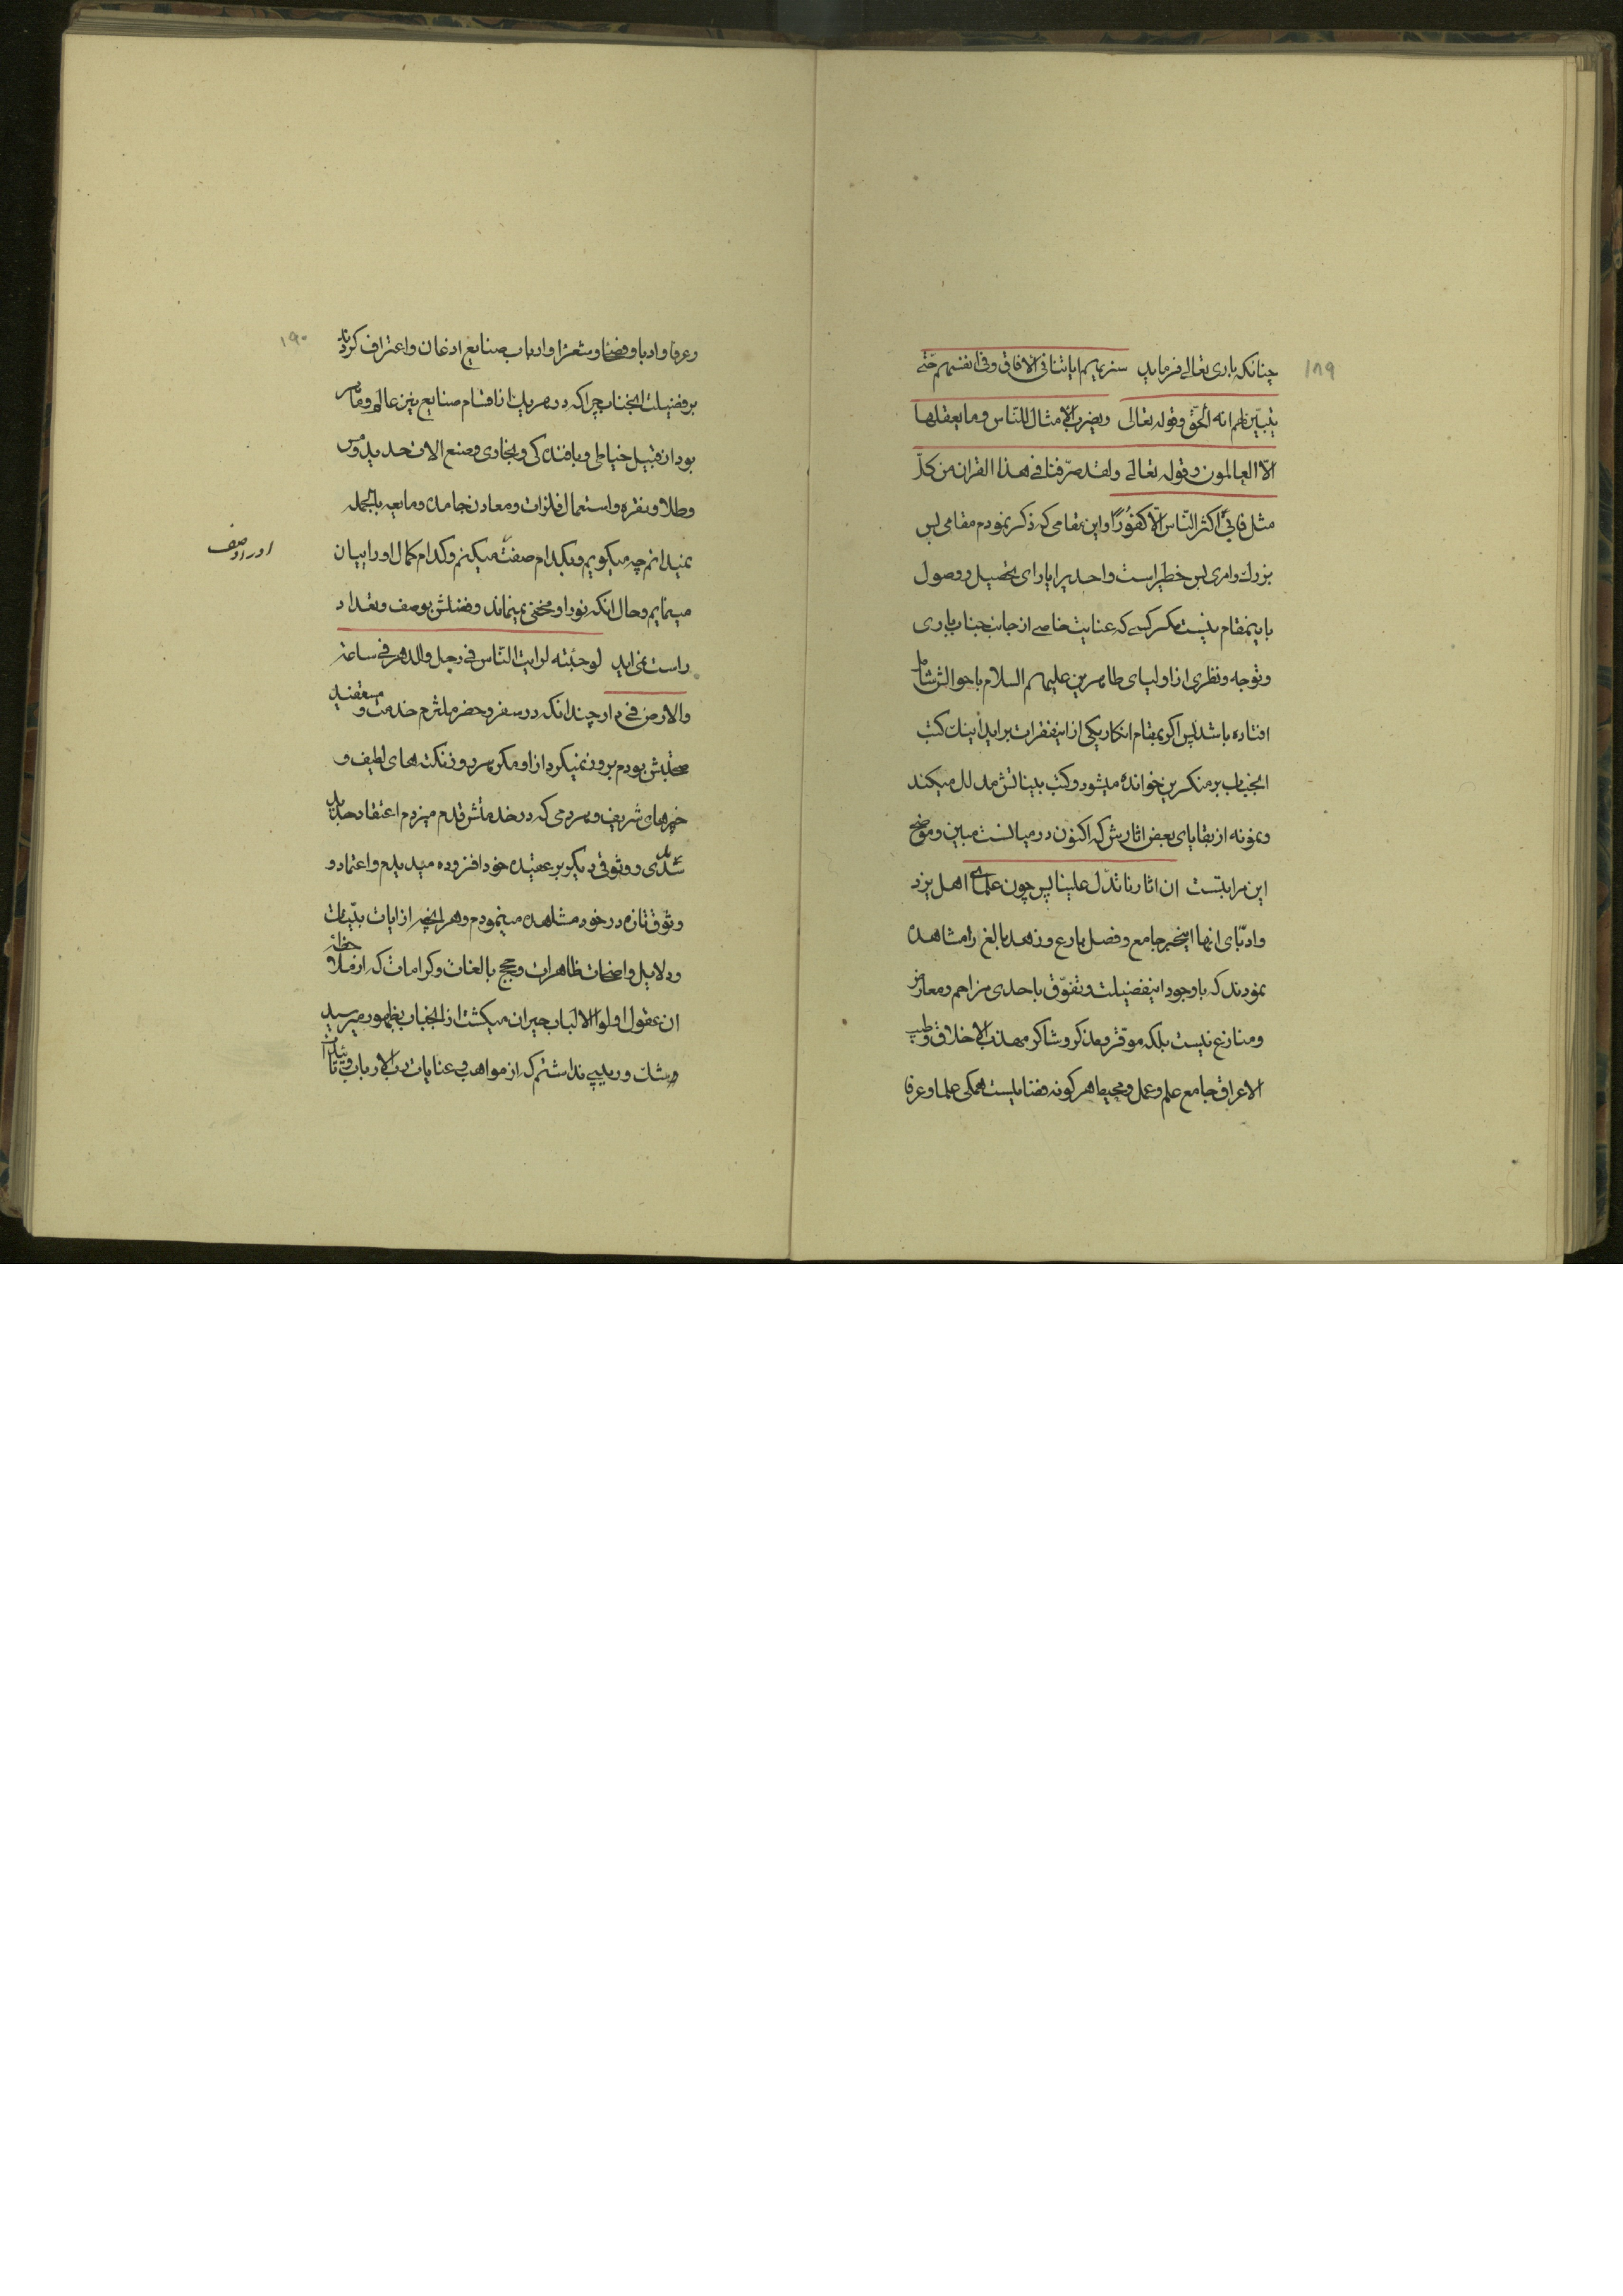 ۱۸۹
چنانکه باری تعالی فرماید سنریهم ایاتنا فی الافاق و فی انفسهم حتّی
یتبیّن لهم انه الحقّ و قوله تعالی و یضرب الامثال للنّاس و ما یعقلها
الاّ العالمون و قوله تعالی و لقد صرّفنا فی هذا القران من کلّ
مثل فابیٰ اکثر النّاس الّا کفوُرًا و این مقامی که ذکر نمودم مقامی بس
بزرك و امری بس خطیر است و احدیرا یارای تحصیل و وصول
باینمقام نیست مکر کسی که عنایت خاصی از جانب جناب باری
و توجه و نظری از اولیای طاهرین علیهم السلام باحوالش شامل
افتاده باشد پس اکر بمقام انکار یکی از اینفقرات براید اینك کتب
انجناب بر منکرین خوانده میشود و کتب بیناتش مدلل میکند
و نمونه از بقایای بعض اثارش که اکنون در میانست مبین و موضح
این مراتبست ان اثارنا تدّل علینا پس چون علمای اهل یزد
و ادبّای انها اینخیر جامع و فضل بارع و زهد بالغ را مشاهده
نمودند که با وجود اینفضیلت و تفوّق باحدی مزاحم و معارض
و منازع نیست بلکه موقّر و مذکر و شاکر مهذب الاخلاق و طیب
الاعراق جامع علم و عمل و محیط هرکونه فضایلیست همکی علما و عرفا
۱۹۰
و عرفا و ادبا و فضلا و شعرا و ارباب صنایع اذعان و اعتراف کردند
بر فضیلت انجناب چرا که در هریك از اقسام صنایع نیز عالم و ماهر
بود از قبیل خیاطی و بافنده کی و نجاری و صنع الات حدید و مس
و طلا و نقره و استعمال فلزات و معادن جامده و مایعه بالجمله
نمیدانم چه میکویم و بکدام صفت میکنم و کدام کمال او را بیان
اورا وصف
مینمایم و حال انکه نور او مخفی نمیماند و فضلش بوصف و تعداد
راست نمیاید لو جئته لرایت النّاس فی رجل والدهر فی ساعة
والارض فی دار چندانکه در سفر و حضر ملتزم خدمت و مستفید
صحبتش بودم بروز نمیکرد از او مکر سر و رمز نکته های لطیف و
خبرهای شریف و هر دمی که در خدمتش قدم میزدم اعتقاد جدید
شدی و وثوقی دیکر بر عقیده خود افزوده میدیدم و اعتماد و
وثوق تازه در خود مشاهده مینمودم و هر لحظه از ایات بیّنات
و دلایل واضحات ظاهرات و حجج بالغات و کرامات که از ملاحظه
ان عقول اولوا الالباب حیران میکشت از انجناب بظهور میرسید
و شك و ریبی نداشتم که از مواهب و عنایات رب الارباب و تاثیرات